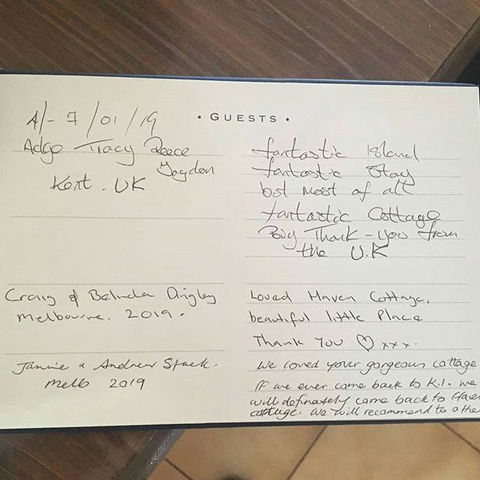 4/-7/01/19
• GUESTS •
Adge Tracy Reece
Jayden
Kent. UK
fantastic Island
fantastic Stay
but most of all
fantastic Cottage
Big Thank-you from
the U.K
Craig & Belinda Dingley
Melbourne. 2019.
Loved Haven Cottage,
beautiful little Place
Thank You ♡ xxx.
Jannie & Andrew Stack.
Melb 2019
We loved your gorgeous cottage
IF we ever come back to K.I. we
will definately come back to Haven
cottage. We will recommend to othe